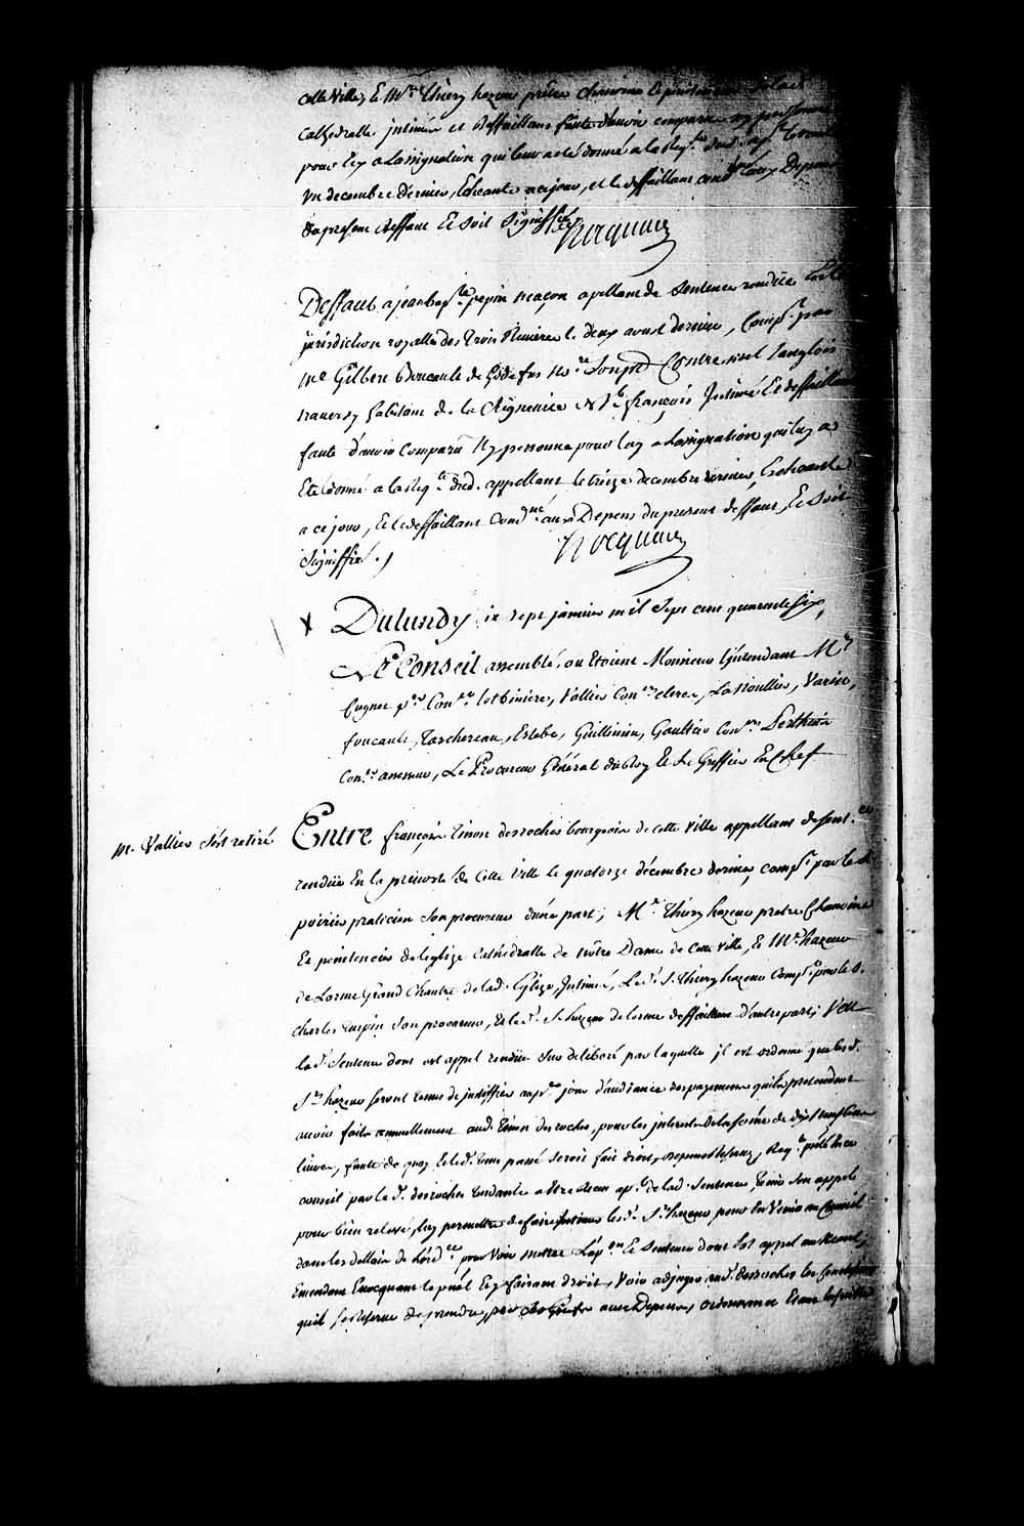 cette Ville, Et Mre Thiery hazeur prêtre Chanoine Et penitencier de lad.
Cathedralle intimés et deffaillans faute d'avoir comparu ny personne
pour Eux a L'assignation qui leur a eté donnée a la Reqte dud. apt le
un decembre dernier, Echeante a ce jour, et les deffaillans condnez aux Depens
du present deffaut Et soit signiffié
Hocquart
Deffaut a jean bapte pepin maçon apellant de Sentence rendüe En la
jurisdiction royalle des Trois Rivieres le deux aoust dernier, Compt par
Me Gilbert Boucault de Godefus Nore Contre noel Langlois
traversy habitant de la Seigneurie de St françois Intimé Et deffaillant
faute d'avoir Comparu Ny personne pour luy a L'assignation qui luy a
Eté donnée a la Reqte dud. appellant le treize decembre dernier, Echeante
a ce jour, Et le deffaillant Condné aux Depens du present deffaut, Et Soit
Signiffié ./
Hocquart
Du lundy dix sept janvier mil Sept cent quarante Six,
Le Conseil assemblé, ou Etoient Monsieur L'intendant Mrs
Cugnet pr Coner lotbiniere, Vallier Conrs clercs, La Noullier, Varin,
foucault, Taschereau, Estebe, Guillimin, Gaultier Conrs Berthier
Conr assesseur, Le Procureur Général du Roy Et Le Greffier En Chef
M. Vallier s'est retiré
Entre françois Rinon desroches bourgeois de cette Ville appellant de Sentce
rendüe En la prévosté de Cette Ville le quatorze décembre dernier, compt par le Sr
poirier praticien Son procureur d'une part; Mre Thiery hazeur pretre Chanoine
Et penitencier de L'eglize Cathédralle de Nôtre Dame de Cette Ville, Et Mre hazeur
de Lorme Grand Chantre de lad. Eglize, Intimés, Led. S. Thiery hazeur Compt par le S.
charles turpin Son procureur, Et led. S. hazeur de lorme deffaillant d'autre part; Veu
lad. Sentence dont est appel rendüe Sur deliberé par laquelle il est ordonné que lesd.
Srs hazeur seront tenus de justiffier au pr jour d'audiance des payemens qu'ils pretendent
avoir faits annuellement aud. Rinon desroches, pour les interests de la somme de
livres, faute de quoy Et led. tems passé seroit fait droit, depens reservez, Reqte prtée En ce
conseil par led. desroches tendante a Etre receu apt de lad. Sentence, tenir Son appel
pour bien relevé, luy permettre de faire Intimer lesd. Srs hazeur pour En Venir au Conseil
dans les dellais de L'ordce pour Voir mettre L'apon Et Sentence dont Est appel au Neant,
Emendant Evocquant le prāl Et y faisant droit, Voir adjuger aud. Desroches les Conclusions
qu'il se reserve de prendre, avec Depens, ordonnance Etant